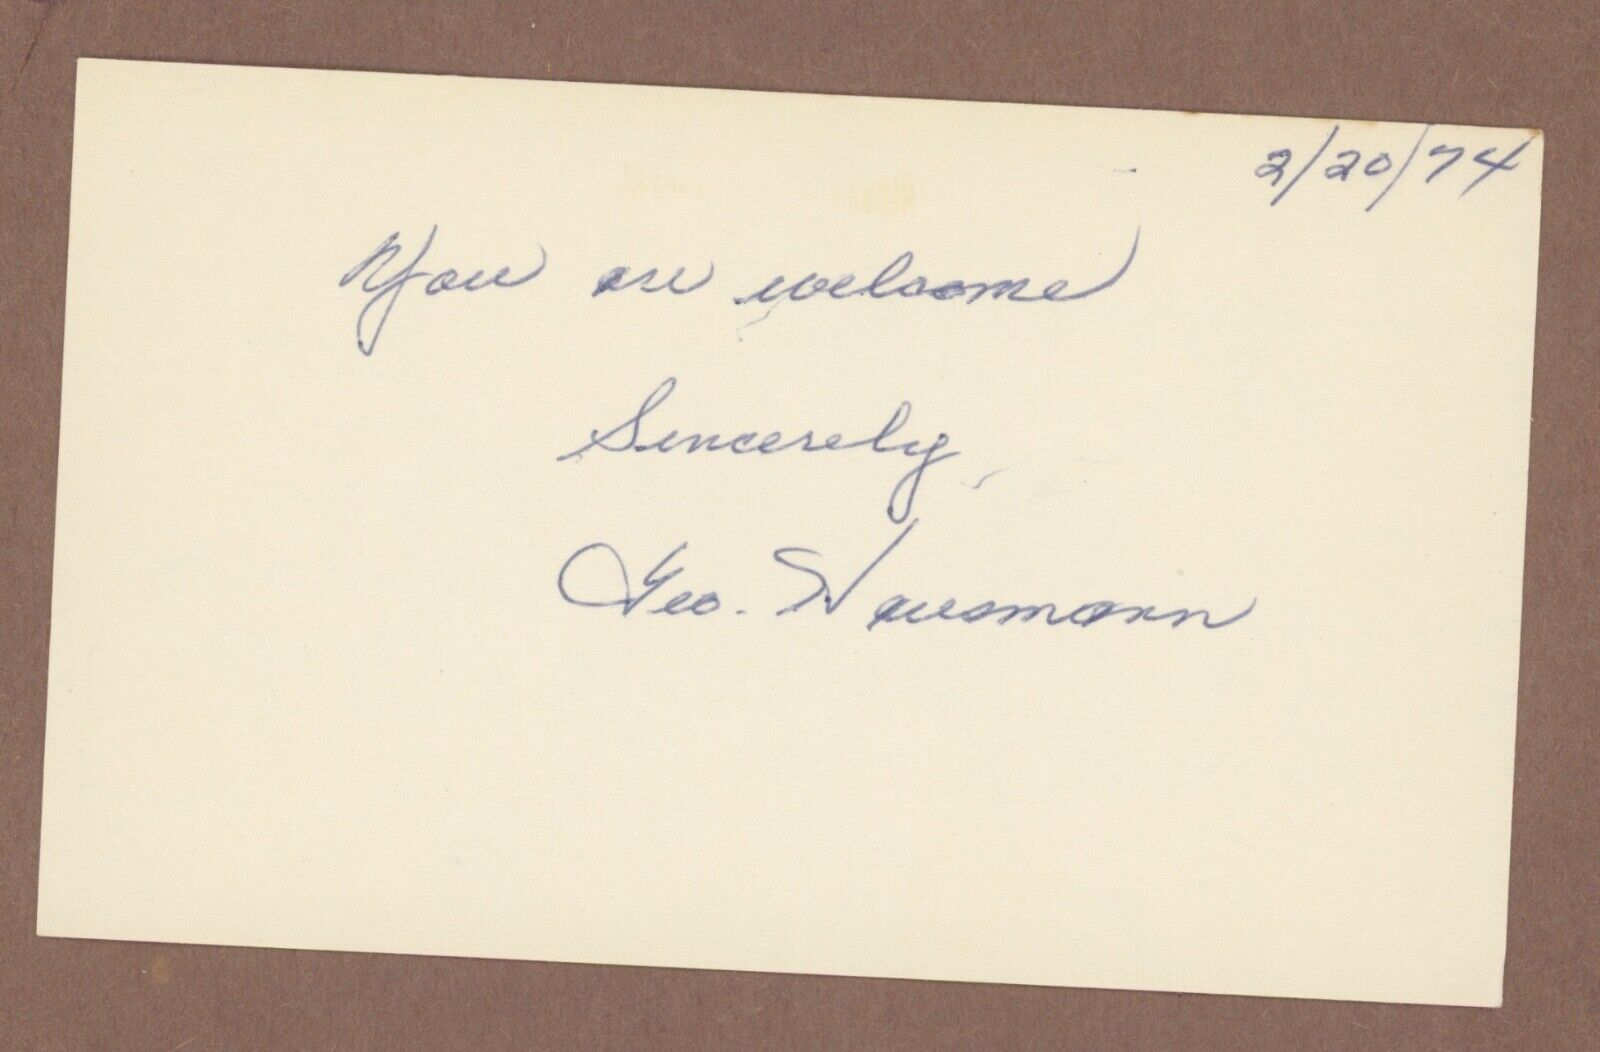 2/20/74
You are welcome
Sincerely,
Geo. Hausmann